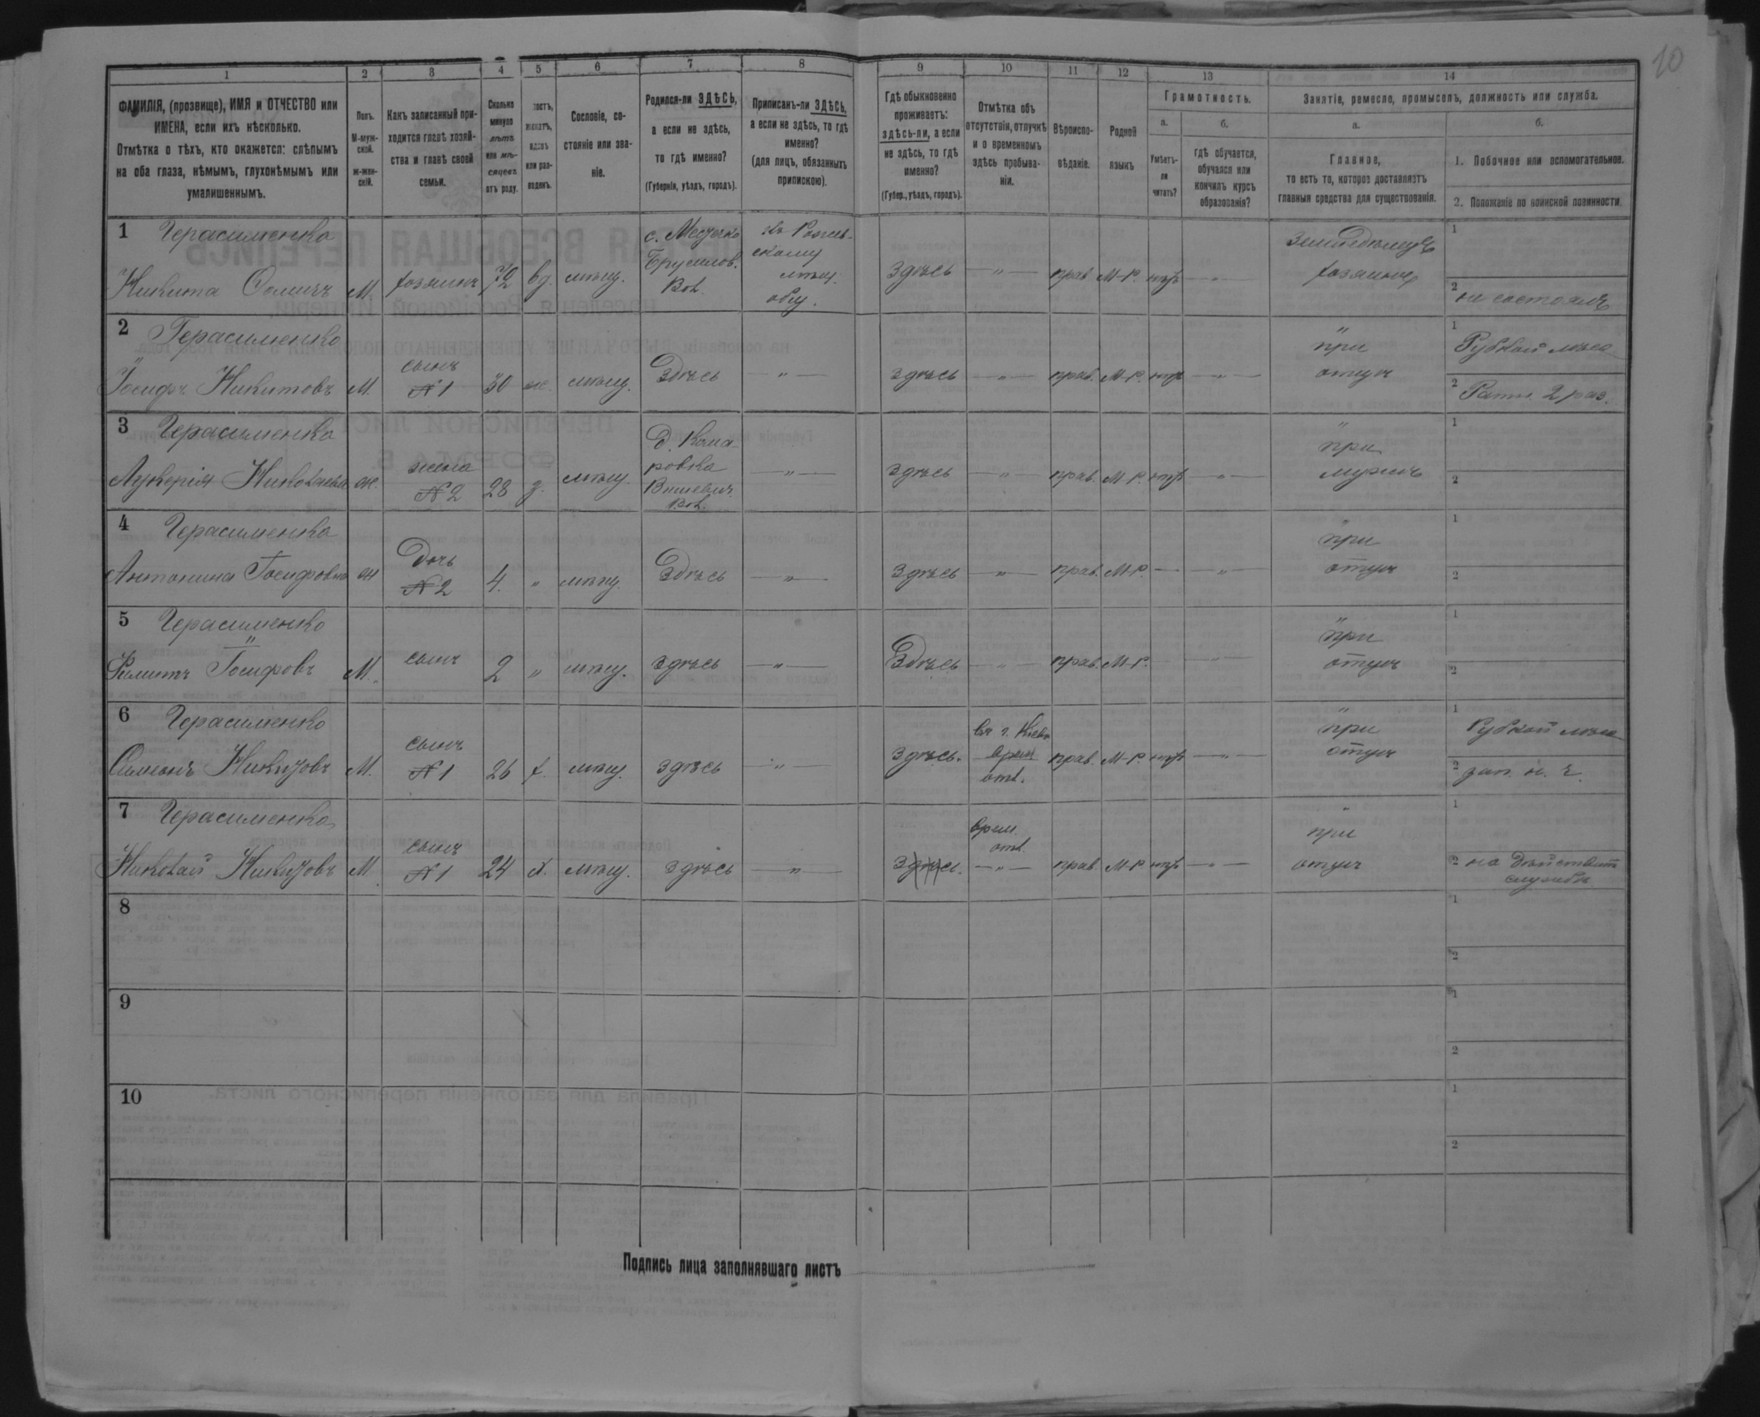 10
1 2 3 4 5 6 7 8 9 10 11 12 13 14
ФАМИЛІЯ, (прозвище), ИМЯ и ОТЧЕСТВО или
ИМЕНА, если ихъ нѣсколько.
Отмѣтка о тѣхъ, кто окажется: слѣпымъ
на оба глаза, нѣмымъ, глухонѣмымъ или
умалишеннымъ.
Полъ.
М-муж-
ской.
ж-жен-
скій.
Какъ записанный при-
ходится главѣ хозяй-
ства и главѣ своей
семьи.
Сколько
минуло
лѣтъ
или мѣ-
сяцевъ
отъ роду.
Сословіе, со-
стояніе или зва-
ніе.
Родился-ли ЗДѢСЬ,
а если не здѣсь,
то гдѣ именно?
(Губернія, уѣздъ, городъ).
Приписанъ-ли ЗДѢСЬ,
а если не здѣсь, то гдѣ
именно?
(для лицъ, обязанныхъ
припискою).
Гдѣ обыкновенно
проживаетъ:
здѣсь-ли, а если
не здѣсь, то гдѣ
именно?
(Губер., уѣздъ, городъ).
Отмѣтка объ
отсутствіи, отлучкѣ
и о временномъ
здѣсь пребыва-
ніи.
Вѣроиспо-
вѣданіе.
Родной
языкъ
Грамотность.
а.
Умѣетъ-
ли
читать?
б.
гдѣ обучается,
обучался или
кончилъ курсъ
образованія?
Занятіе, ремесло, промыселъ, должность или служба.
а.
Главное,
то есть то, которое доставляетъ
главныя средства для существованія.
б.
1. Побочное или вспомогательное.
2. Положеніе по воинской повинности.
1 Герасименко
Никита М хозяинъ 72 вд. мѣщ.
Брусилов.
Вол.
мѣщ.
общ.
здѣсь —"— прав М-Р. нѣтъ —"—
хозяинъ
1
2 не состоялъ
2 Герасименко
Іосифъ Никитовъ М.
сынъ
№1 30 ж. мѣщ. Здѣсь —"— здѣсь —"— прав. М-Р. нѣтъ —"—
"
при
отцѣ
1
2 Ратн. 2 раз.
3 Герасименко
Лукерія Николаева ж.
жена
№2 28 з. мѣщ
—"— здѣсь —"— прав. М-Р. нѣтъ —"—
"
при
мужѣ
1
2
4 Герасименко
Антонина Іосифовна ж
Дочь
№2 4. " мѣщ. Здѣсь —"— Здѣсь —"— прав. М-Р. — —"—
"
при
отцѣ
1
2
5 Герасименко
Филиппъ Іосифовъ М.
сынъ 2 " мѣщ. здѣсь —"— Здѣсь —"— прав. М-Р. —"—
"
при
отцѣ
1
2
6 Герасименко
Симеонъ Никитовъ М.
сынъ
№1 26 х. мѣщ. здѣсь —"— здѣсь.
въ г. Кіевѣ
врем.
отл.
прав. М-Р нѣтъ —"—
"
при
отцѣ
1
2 зап. н. ч.
7 Герасименко
Николай Никитовъ М.
сынъ
№1 24 х. мѣщ. здѣсь —"— здѣсь.
врем.
отл
—"— прав. М-Р нѣтъ —"—
"
при
отцѣ
1
2 на Дѣйствит
службѣ
8 1
2
9 1
2
10 1
2
Подпись лица заполнявшаго листъ